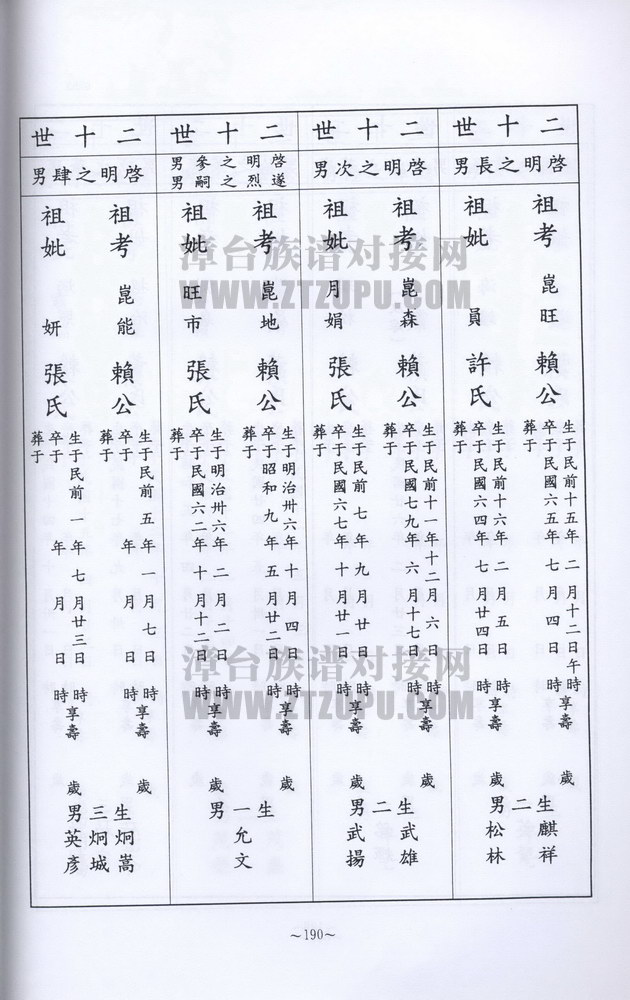 二十世
啓明之長男
祖考 崑旺 賴公
生于民前十五年 二月十二日午時享壽 歲
卒于民國六五年 七月 四日
葬于
祖妣 員 許氏
生于民前十六年 二月 五日 時享壽 歲
卒于民國六四年 七月廿四日
葬于
生二男
麒祥
松林
二十世
啓明之次男
祖考 崑森 賴公
生于民前十一年十二月 六日 時享壽 歲
卒于民國七九年 六月十七日
葬于
祖妣 月娟 張氏
生于民前 七年 九月 廿日 時享壽 歲
卒于民國六七年 十月廿一日
葬于
生二男
武雄
武揚
二十世
啓明之參男
遂烈之嗣男
祖考 崑地 賴公
生于明治卅六年 十月 四日 時享壽 歲
卒于昭和 九年 五月廿二日
葬于
祖妣 旺市 張氏
生于明治卅六年 二月 二日 時享壽 歲
卒于民國六二年 十月十二日
葬于
生一男
允文
二十世
啓明之肆男
祖考 崑能 賴公
生于民前 五年 一月 七日 時享壽 歲
卒于 年 月 日
葬于
祖妣 妍 張氏
生于民前 一年 七月廿三日 時享壽 歲
卒于 年 月 日
葬于
生三男
炯嵩
炯城
英彥
漳台族谱对接网
WWW.ZTZUPU.COM
漳台族谱对接网
WWW.ZTZUPU.COM
～190～